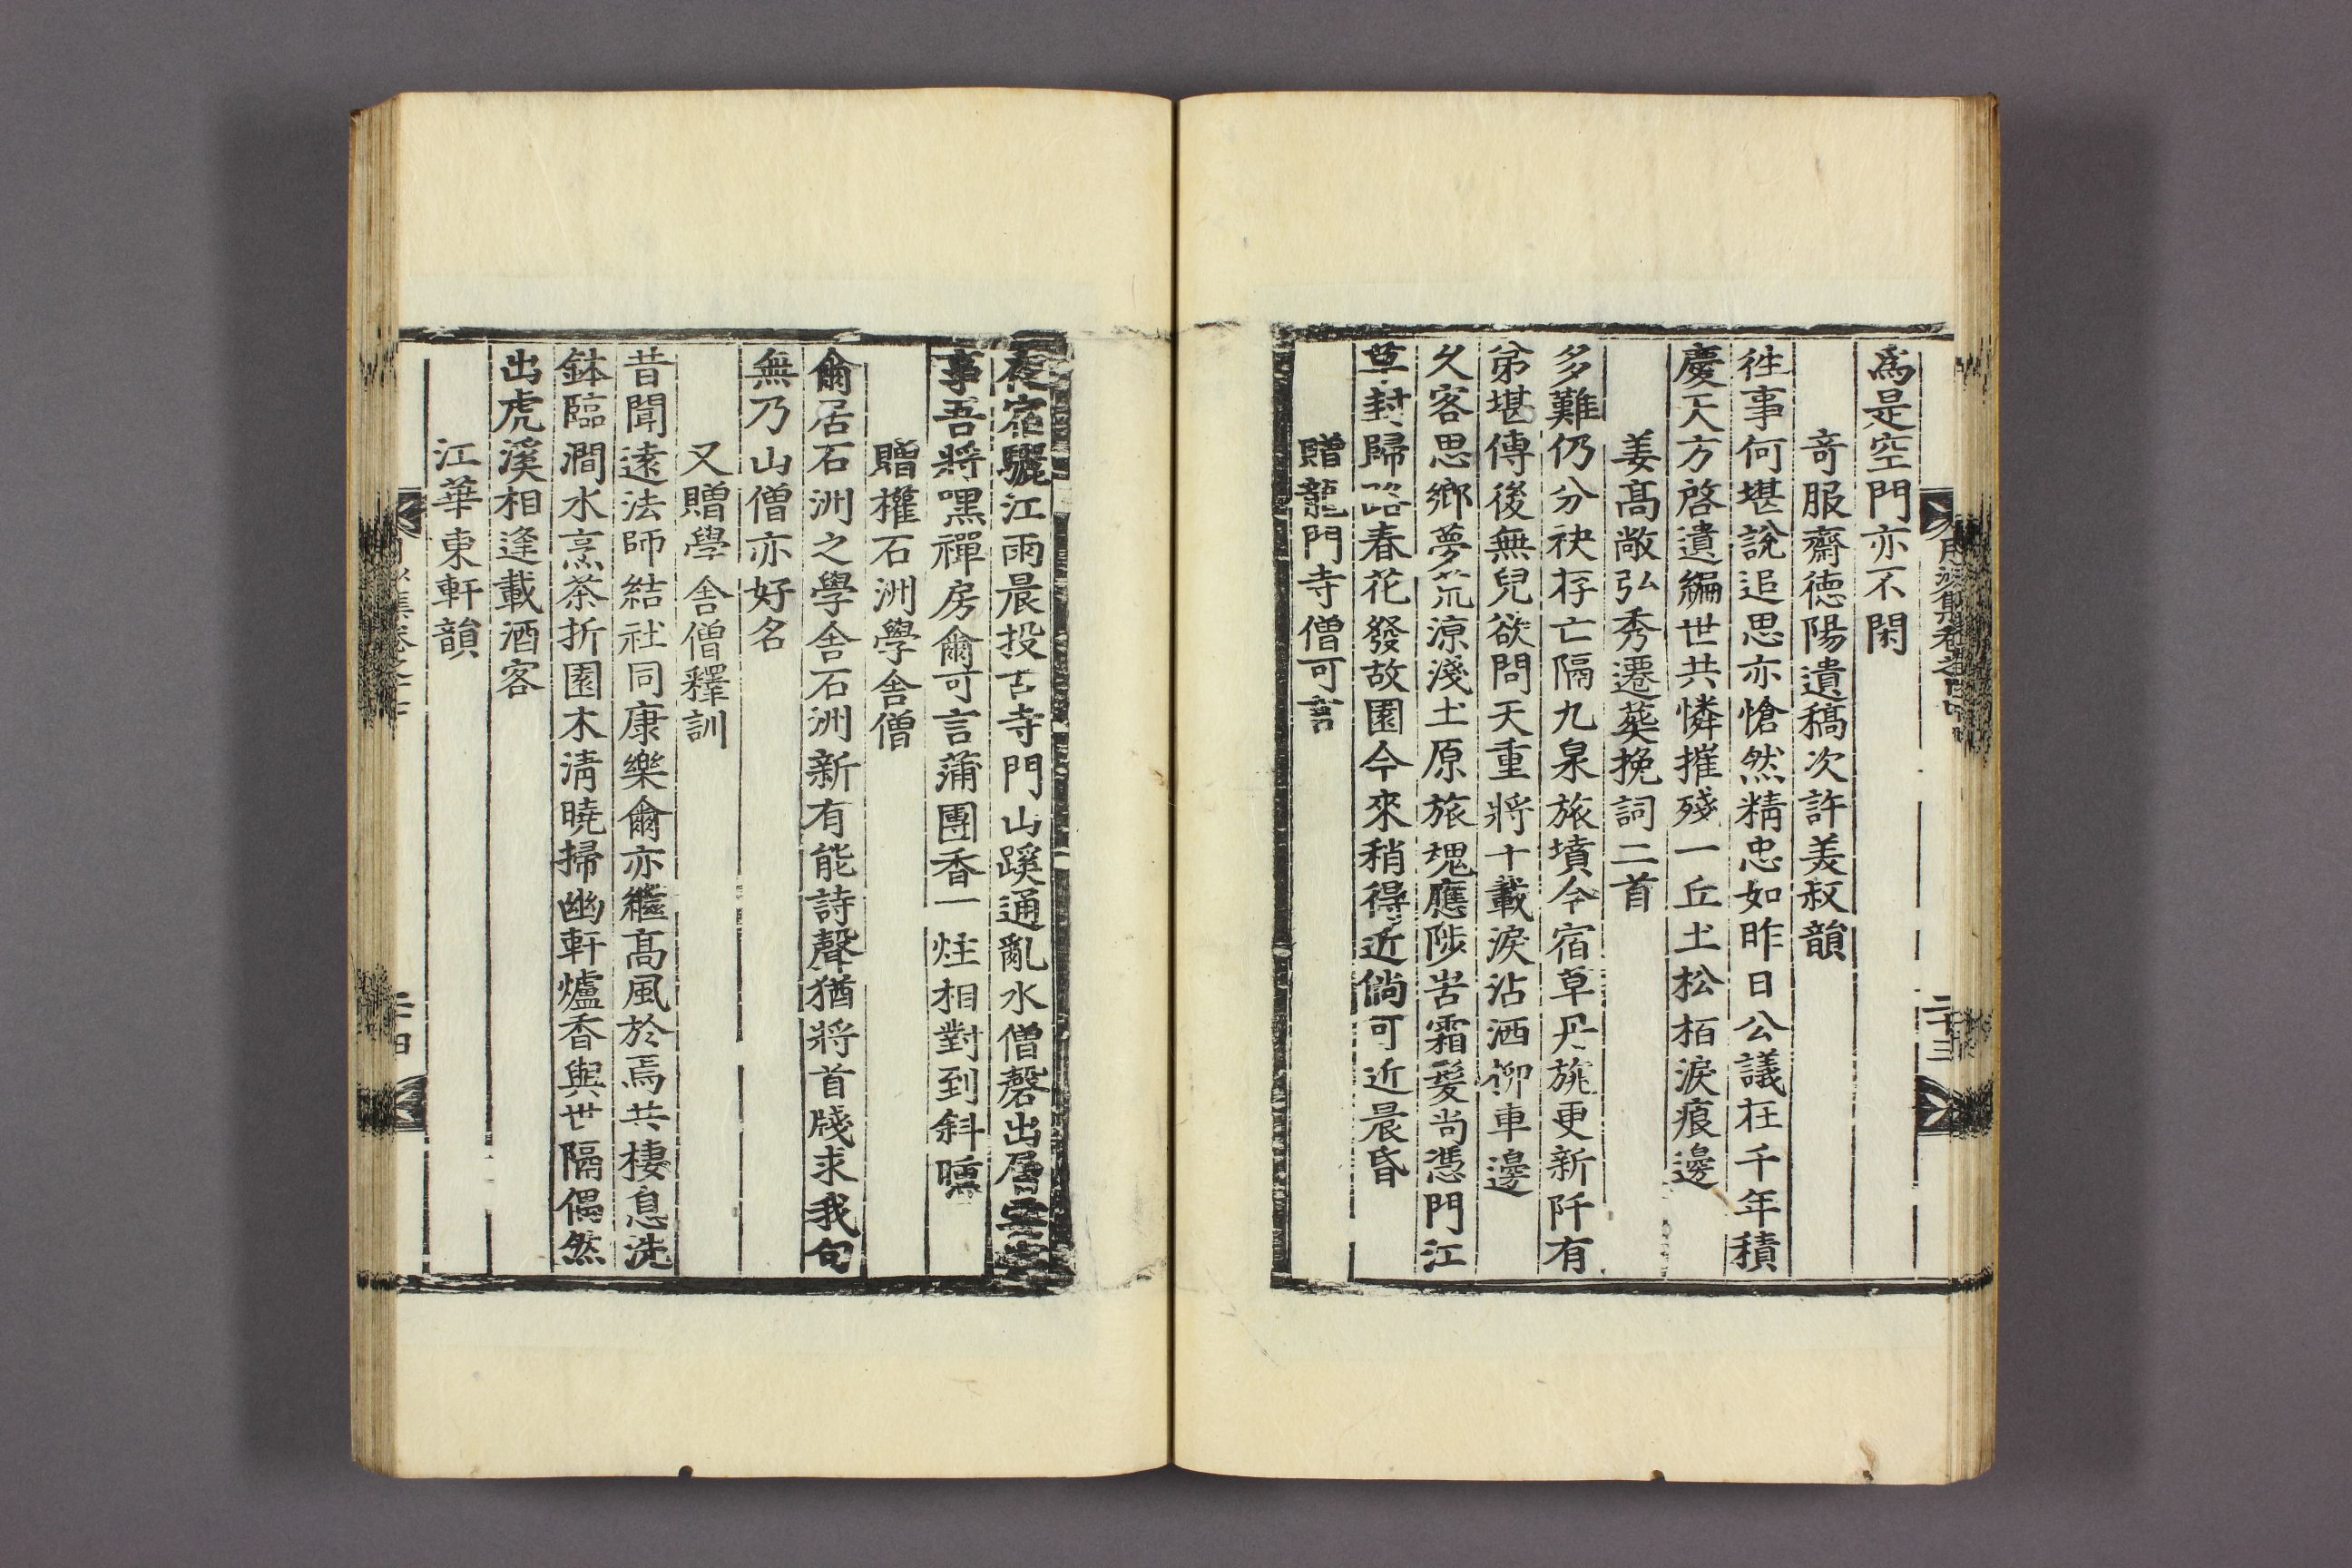 爲是空門亦不閑
奇服齋德陽遺稿次許美叔韻
徃事何堪說追思亦愴然精忠如昨日公議在千年積
慶天方啓遺編世共憐摧殘一丘土松栢淚痕邊
姜高敞弘秀遷葬挽詞二首
多難仍分袂存亡隔九泉旅墳今宿草丹旐更新阡有
弟堪傳後無兒欲問天重將十載淚沾洒柳車邊
久客思鄉夢荒凉淺土原旅魂應陟岵霜髮尚憑門江
草封歸路春花發故園今來稍得近倘可近晨昏
贈龍門寺僧可言
夜宿驪江雨晨投古寺門山蹊通亂水僧磬出層
事吾將嘿禪房爾可言蒲團香一炷相對到斜曛
贈權石洲學舍僧
爾居石洲之學舍石洲新有能詩聲猶將首牋求我句
無乃山僧亦好名
又贈學舍僧釋訓
昔聞遠法師結社同康樂爾亦繼高風於焉共棲息洗
鉢臨澗水烹茶折園木淸曉掃幽軒爐香與世隔偶然
出虎溪相逢載酒客
江華東軒韻
二十三